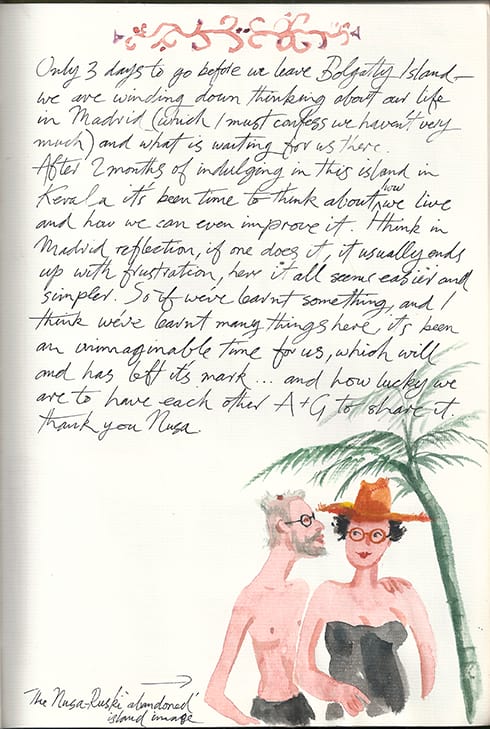 Only 3 days to go before we leave Bolgatty Island –
we are winding down thinking about our life
in Madrid (which I must confess we haven't very
much) and what is waiting for us there.
After 2 months of indulging in this island in
Kerala it's been time to think about how we live
and how we can even improve it. I think in
Madrid reflection, if one does it, it usually ends
up with frustration, here it all seems easier and
simpler. So if we've learnt something, and I
think we've learnt many things here, it's been
an unimaginable time for us, which will
and has left it's mark ... and how lucky we
are to have each other A+G to share it.
Thank you Nusa.
The Nusa-Ruski 'abandoned'
island image